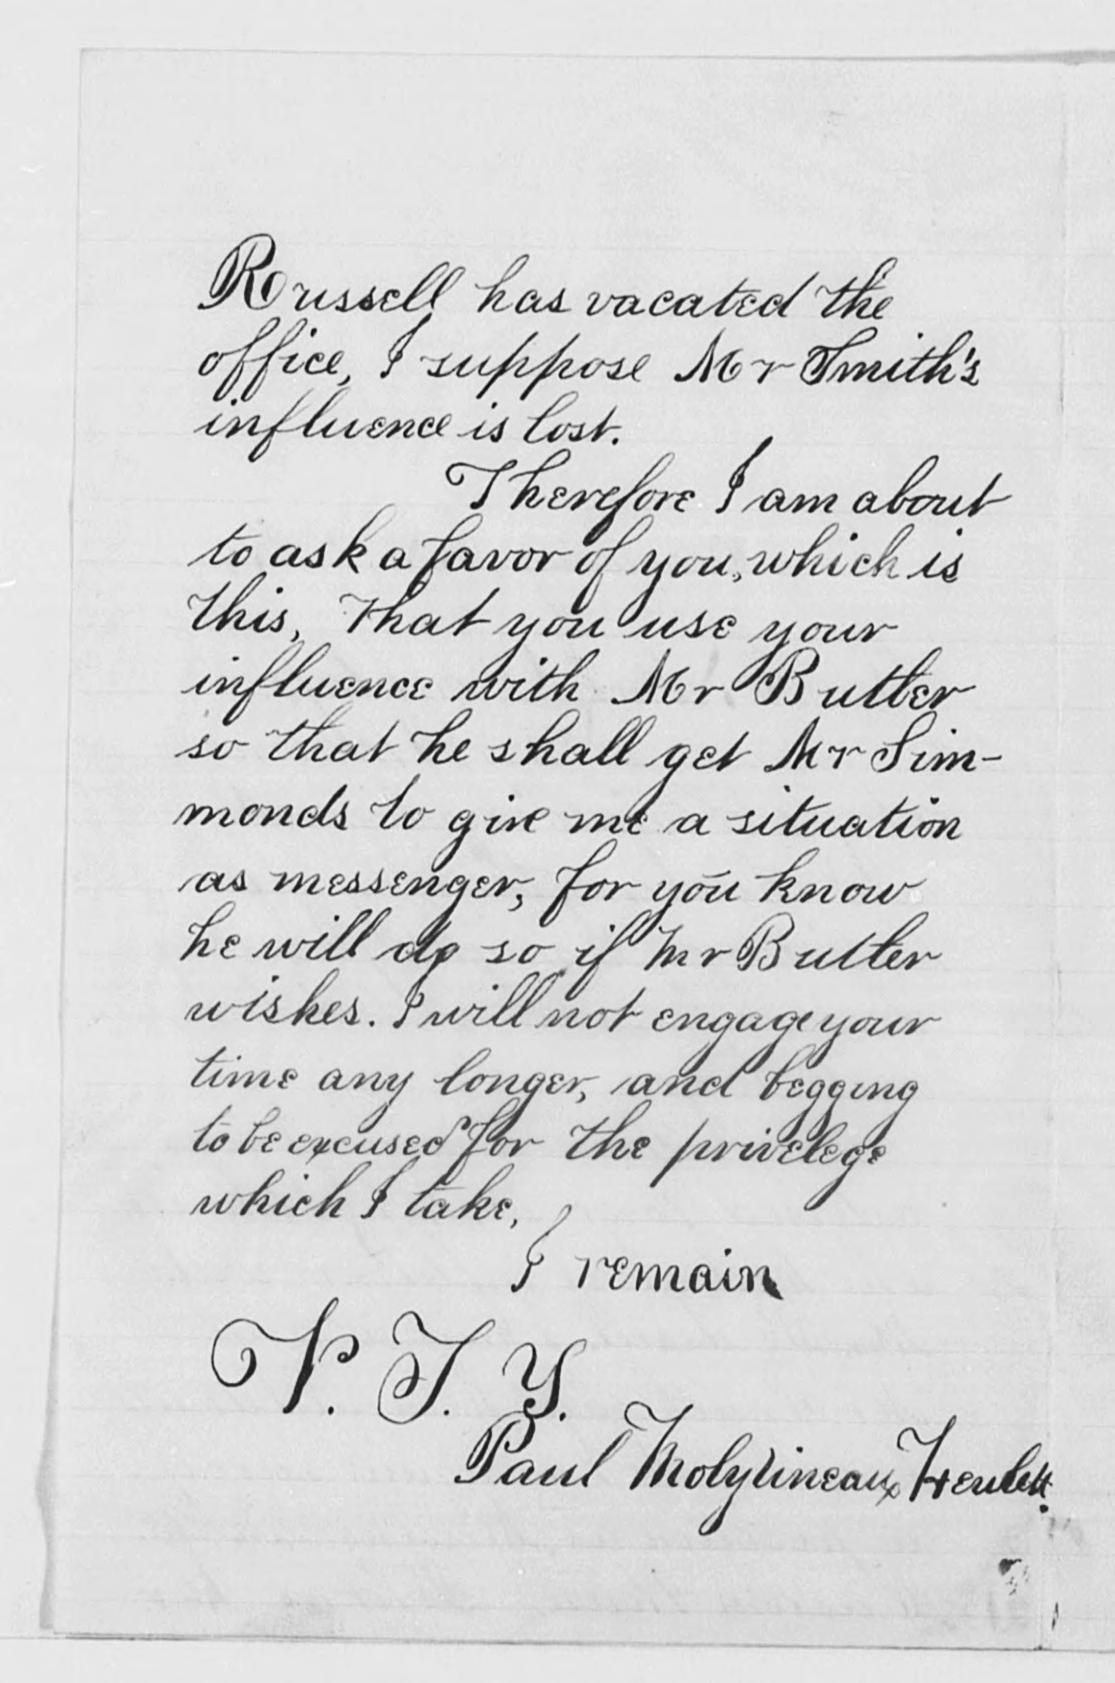 Russell has vacated the
office, I suppose Mr Smith's
influence is lost.
Therefore I am about
to ask a favor of you, which is
this, that you use your
influence with Mr Butler
so that he shall get Mr Sim-
monds to give me a situation
as messenger, for you know
he will do so if Mr Butler
wishes. I will not engage your
time any longer, and begging
to be excused for the privelege
which I take,
I remain
V. T. Y.
Paul Molylineaux Hewlett.